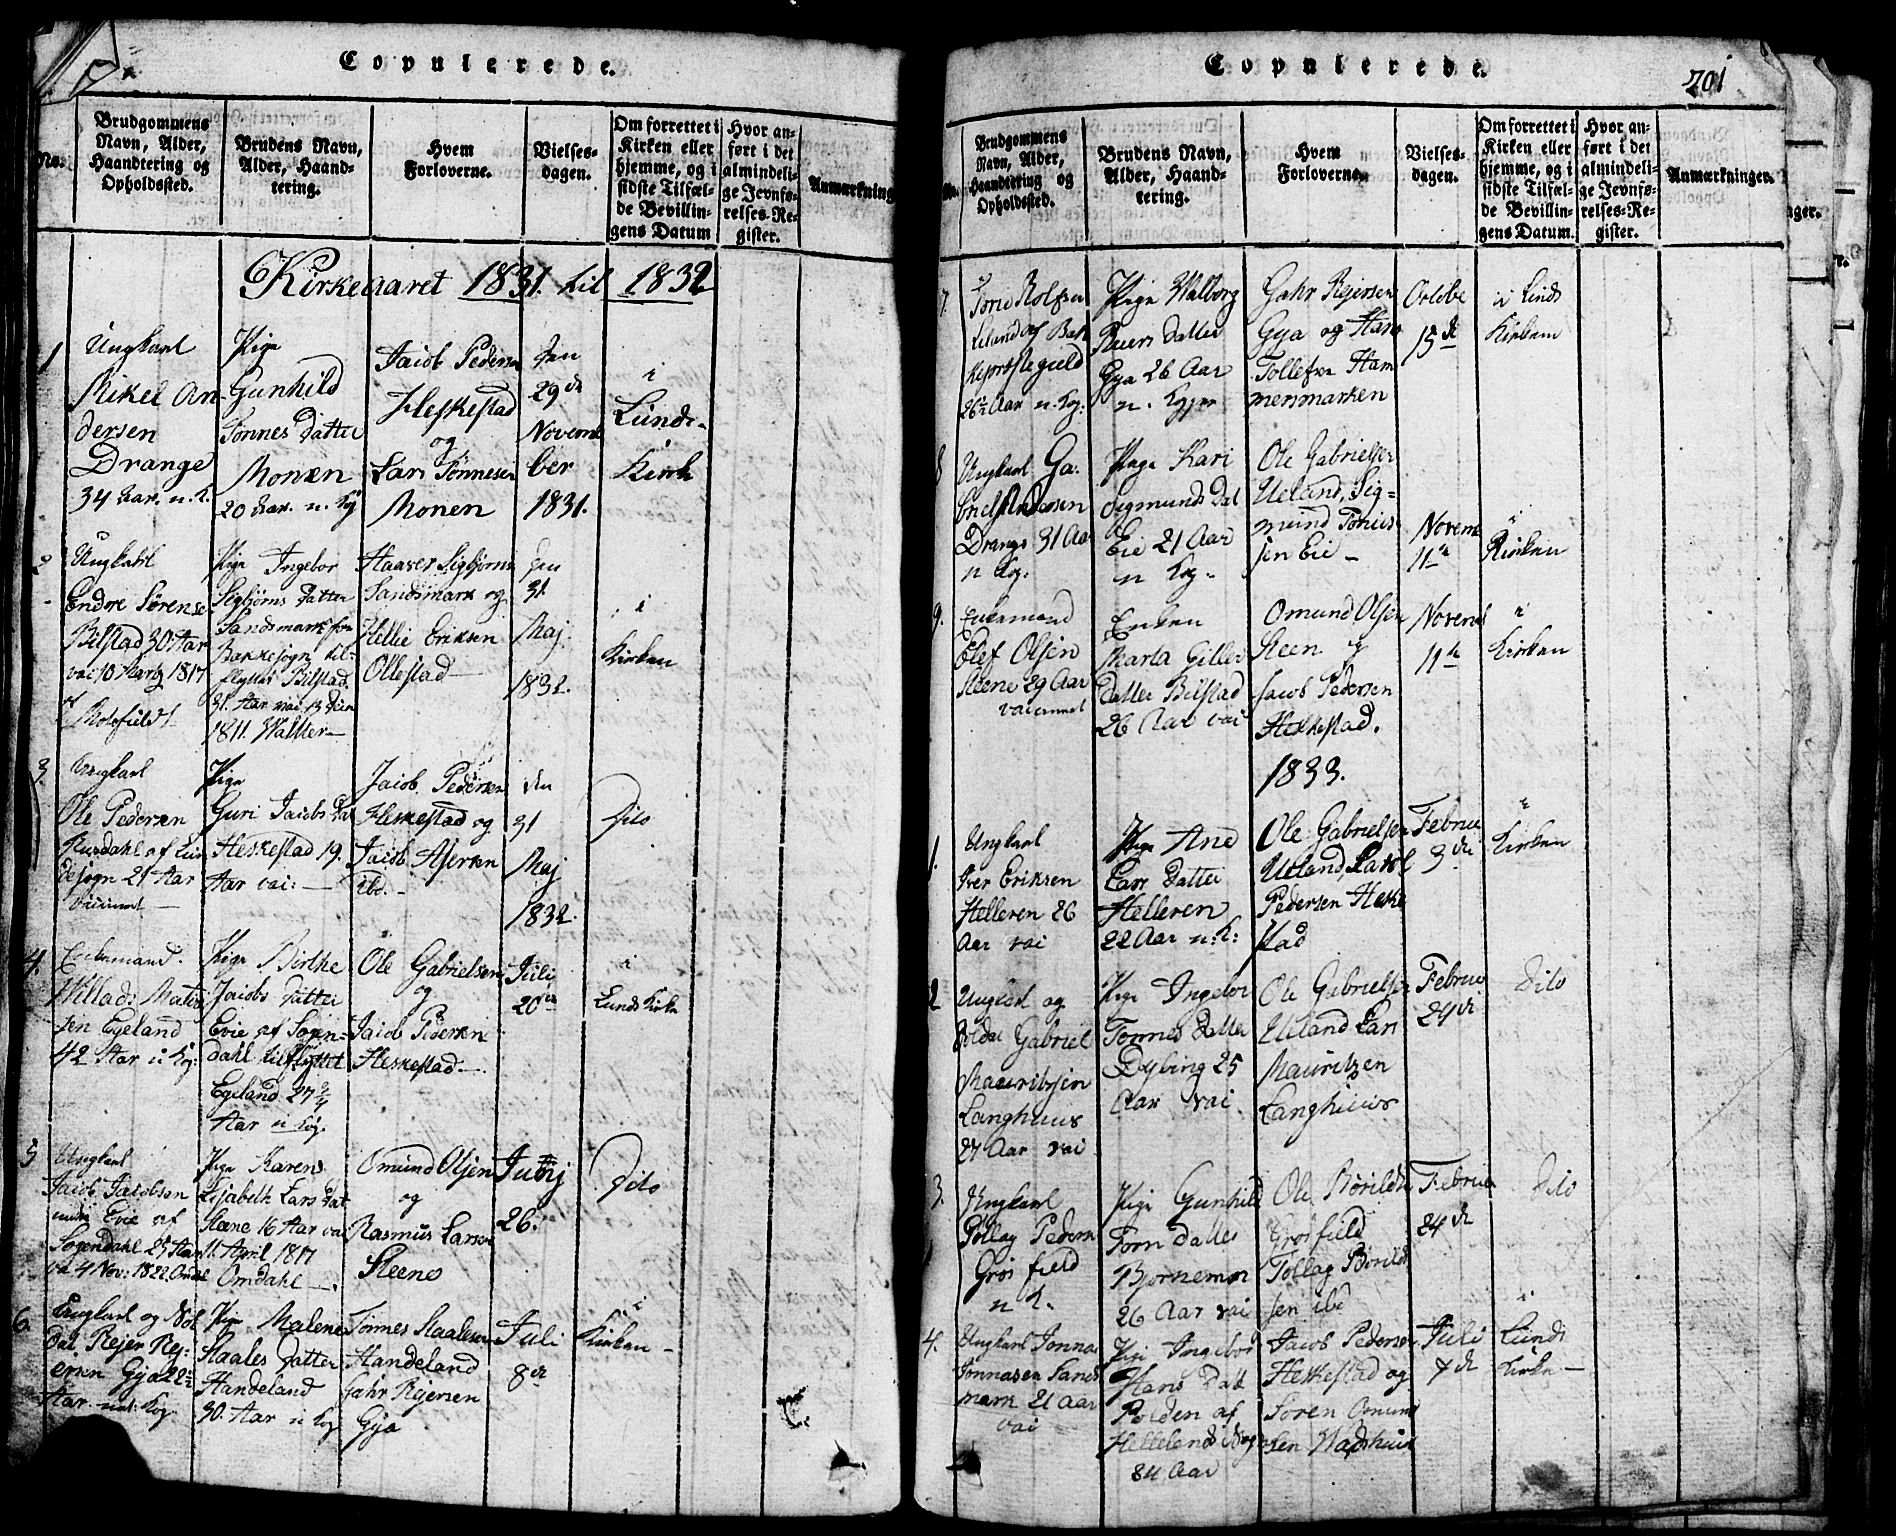 Copulerede.
No.
Brudgommens
Navn, Alder,
Haandtering og
Opholdssted.
Brudens Navn,
Alder, Haand-
tering.
Hvem
Forloverne.
Vielses-
dagen.
Om forrettet i
Kirken eller
hjemme, og i
sidste Tilfæl-
de Bevillin-
gens Datum
Hvor an-
ført i det
almindeli-
ge Jevnfø-
relses-Re-
gister.
Anmærkning
Kirkeaaret 1831. til 1832
1
Ungkarl
Mikel An-
dersen
Drange
34 Aar. n. K.
Pige
Gunhild
Tønnes Datter
Monen
20 Aar. n. Kop
Jacob Pedersen
Heskestad
og
Lars Tønnesen
Monen
Den
29de
Novem
ber
1831.
i
Lunds-
Kirk
2
Ungkarl
Endre Sørens
Bilstad 30 Aar
vac 10 Martz 1817
af
Motzfield
Pige Ingebor
Sigbjørns Datter
Sandsmark fra
Bakkesogn til-
flyttet Bilstad
31. Aar vac 13
1811. Walker
Haaver Sigbjørns
Sandsmark og
Hellie Eriksen
Ollestad
Den
31.
Maj
1832.
i
Kirken
3.
Ungkarl
Ole Pedersen
Nuedahl af Lun
desogn 21 Aar
vaccineret
Pige
Guri Jacobs Dat
Heskestad 19.
Aar vac:
Jacob Pedersen
Heskestad og
Jacob Asersen
ibd.
den
31
Maj
1832.
Dito
4.
Enkemand.
Willads Mathi
sen Egeland
42 Aar n Kop:
Pige Birthe
Jacobs Datter
Evie af Sogen-
dahl tilflyttet
Egeland 27
Aar n Kop.
Ole Gabrielsen
og
Jacob Pedersen
Heskestad
Juli
20de
i
Lunds Kirke
5
Ungkarl
Jacob Jacobsen
Evie af
Sogendahl 25 Aar
va 4 Nov: 1822
Pige Karen
Lisabeth Lars Dat
Steene 16 Aar vac
11. April 1817
Omdahl
Omund Olsen
og
Rasmus Larsen
Steene
Junj
26.
Dito
6.
Ungkarl og Sol
dat Rejer Rej-
ersen Gya 22½
Aar nat: Kop
Pige Malene
Staales Datter
Handeland
30. Aar n Kop
Tønnes Staalesen
Handeland
Gahr Rejersen
Gya
Juli
8de
i
Kirken
Copulerede.
201
No.
Brudgommens
Navn, Alder,
Haandtering og
Opholdssted.
Brudens Navn,
Alder, Haand-
tering.
Hvem
Forloverne.
Vielses-
dagen.
Om forrettet i
Kirken eller
hjemme, og i
sidste Tilfæl-
de Bevillin-
gens Datum.
Hvor an-
ført i det
almindeli-
ge Jevnfø-
relses-Re-
gister.
Anmærkninger.
7.
Tore Rolfsen
Leland af Bak
kepræstegield
26½ Aar n. Kop:
Pige Walborg
Rejers Datter
Gya 26 Aar
n. Kop
Gahr Rejersen
Gya og Hans
Tollefsen Ham
mersmarken
Octobe
15de
i Lunds
Kirken
8
Ungkarl Ga-
briel Andersen
Drange 31 Aa
n Kop:
Pige Kari
Sigmunds Dat
Eie 21 Aar
n Kop.
Ole Gabrielsen
Ueland, Sig-
mund Tønnes
sen Eie
Novem
11te
i
Kirken
9.
Enkemand
Elef Olsen
Steene 29 Aar
vaccineret
Enken
Marta Giller
Datter Bilstad
26 Aar vac
Omund Olsen
Steen og
Jacob Pedersen
Heskestad.
Novemb
11te
i
Kirken
1833.
1.
Ungkarl
Iver Eriksen
Helleren 26
Aar vac
Pige Ane
Lars Datter
Helleren
22 Aar n. K:
Ole Gabrielsen
Ueland, Jacob
Pedersen Heske
stad
Februa
3de
i
Kirken
2
Ungkarl og
Soldat Gabriel
Mauritssen
Langhuus
27 Aar vac
Pige Ingebor
Tønnes Datter
Dybing 25
Aar vac
Ole Gabrielsen
Ueland Lars
Mauritzen
Langhuus
Februa
24de
Dito
3.
Ungkarl
Tollag Pedersen
Grøsfield
n K.
Pige Gunhild
Torn Datter
Bjørnemon
26 Aar vac
Ole Børilds
Grøsfield
Tollag Borild
sen ibd
Februa
24de
Dito
4.
Ungkarl Jonna
Jonnasen Sands
mark 21 Aar
vac
Pige Ingebor
Hans Datt
Polden af
Hellelands Sogn
24 Aar
Jacob Pedersen
Heskestad og
Søren Omund
sen Wadshuus
Juli
7de
i
Lunds
Kirke